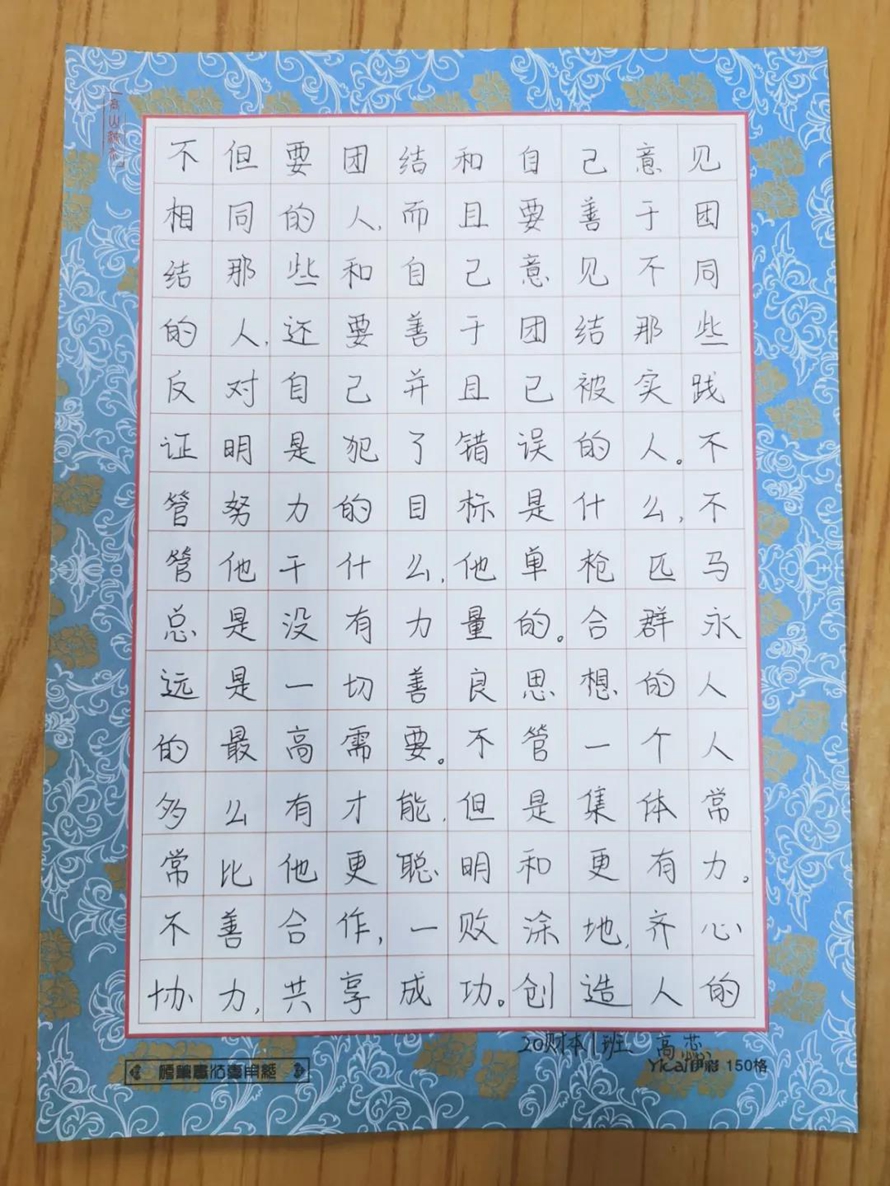 不但要团结和自己意见
相同的人,而且要善于团
结那些和自己意见不同
的人,还要善于团结那些
反对自己并且已被实践
证明是犯了错误的人。不
管努力的目标是什么,不
管他干什么,他单枪匹马
总是没有力量的。合群永
远是一切善良思想的人
的最高需要。不管一个人
多么有才能,但是集体常
常比他更聪明和更有力。
不善合作,一败涂地,齐心
协力,共享成功。创造人的
20财本1班 高
Yicai伊彩 150格
硬笔书法专用纸